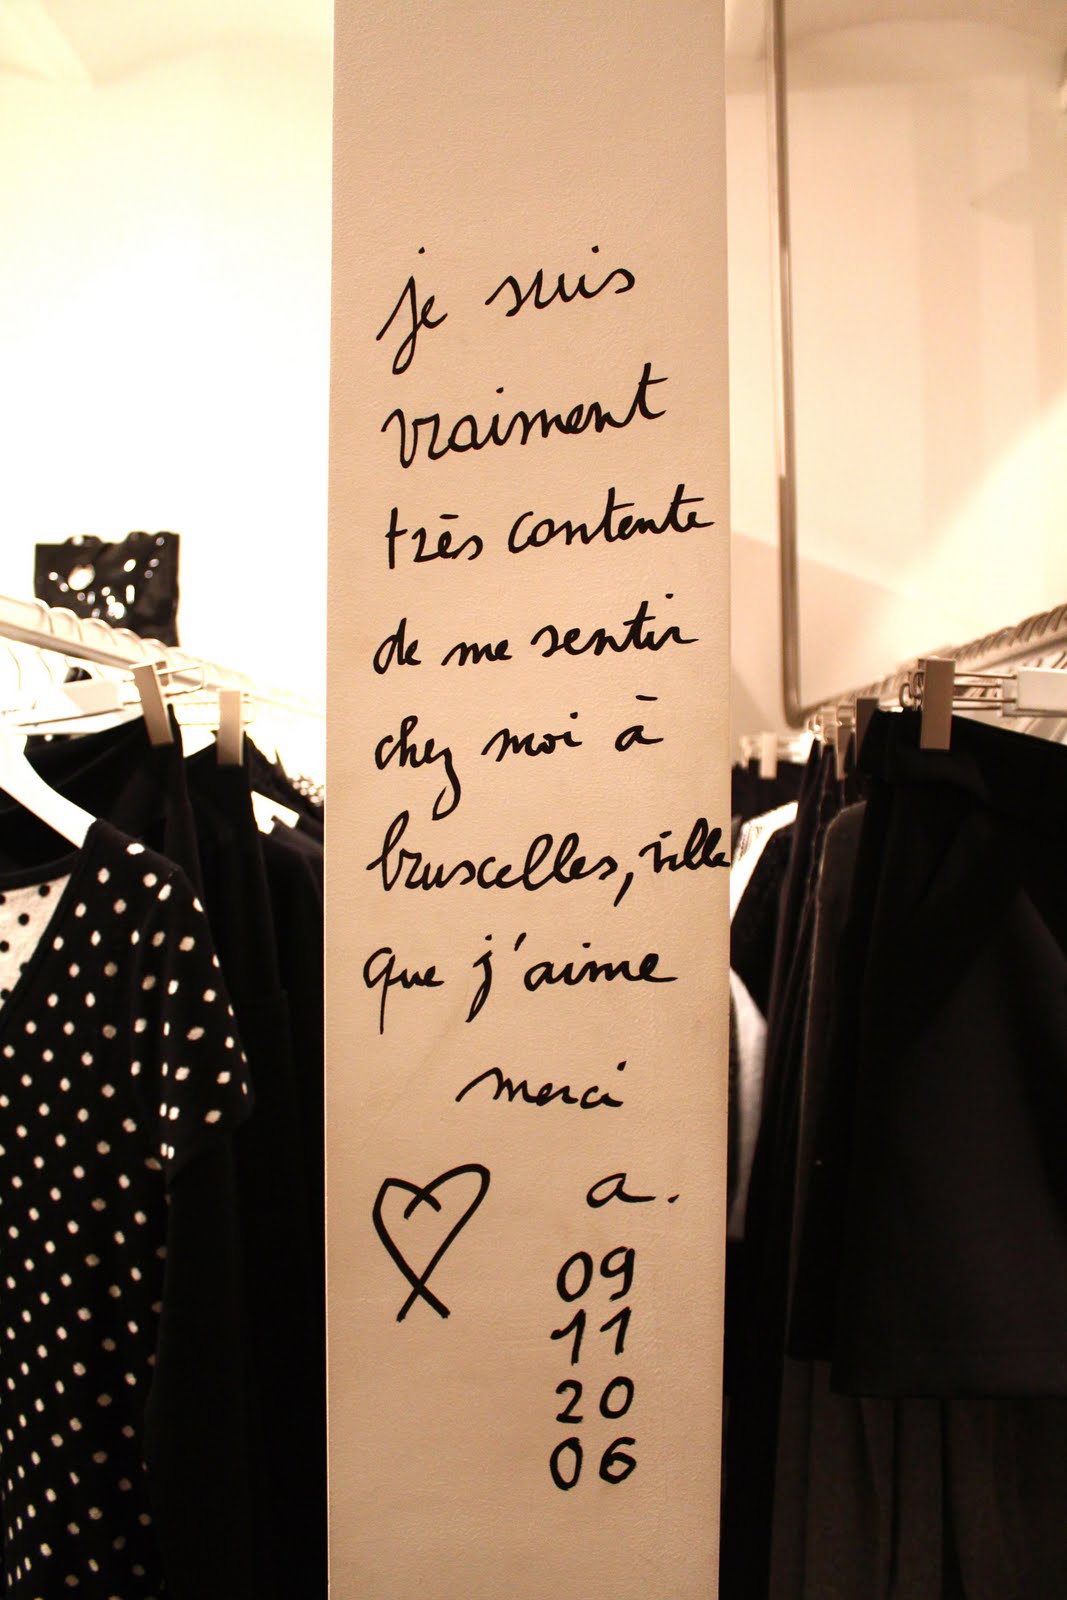 je suis
vraiment
très contente
de me sentir
chez moi à
bruxelles, ville
que j'aime
merci
a.
09
11
20
06